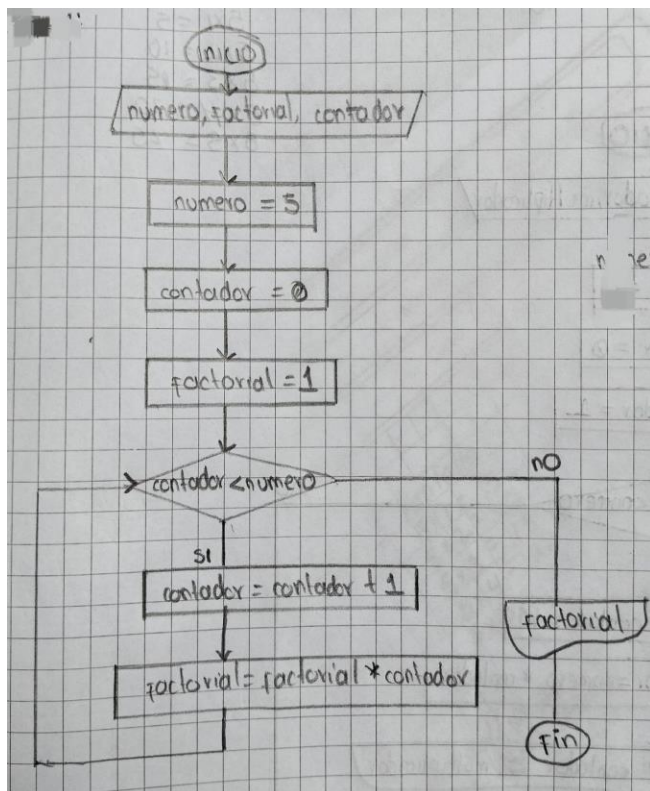 inicio
numero, factorial, contador
numero = 5
contador = 0
factorial = 1
contador < numero
no
si
contador = contador + 1
factorial
factorial = factorial * contador
Fin